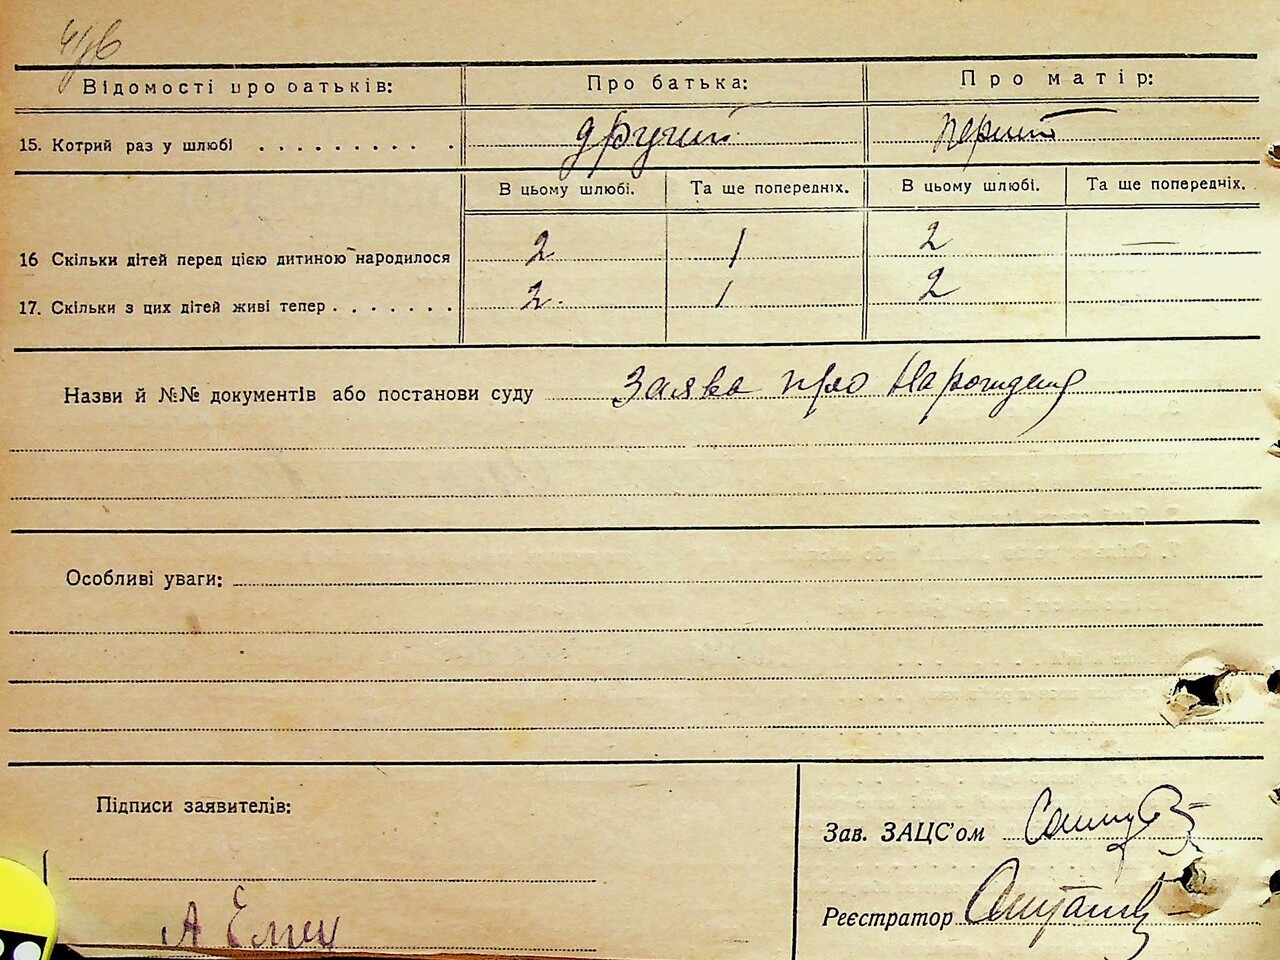 Відомості про батьків: Про батька: Про матір:
15. Котрий раз у шлюбі . . . . . . . . . . другий перший
В цьому шлюбі. Та ще попередніх. В цьому шлюбі. Та ще попередніх.
16 Скільки дітей перед цією дитиною народилося 2 1 2 —
17. Скільки з цих дітей живі тепер . . . . . . . 2 1 2
Назви й №№ документів або постанови суду Заява про Народження
Особливі уваги:
Підписи заявителів:
Зав. ЗАЦС'ом
Реєстратор
А